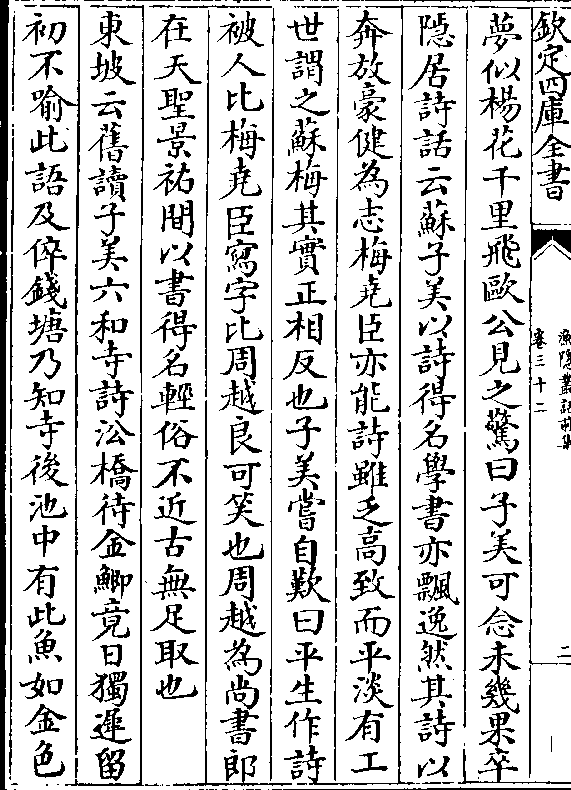 欽定四庫全書
漁隱叢話前集
卷三十二
二
夢似楊花千里飛歐公見之驚曰子美可念未幾果卒
隱居詩話云蘇子美以詩得名學書亦飄逸然其詩以
奔放豪健為志梅堯臣亦能詩雖乏高致而平淡有工
世謂之蘇梅其實正相反也子美嘗自歎曰平生作詩
被人比梅堯臣寫字比周越良可笑也周越為尚書郎
在天聖景祐間以書得名輕俗不近古無足取也
東坡云舊讀子美六和寺詩沿橋待金鯽竟日獨遲留
初不喻此語及倅錢塘乃知寺後池中有此魚如金色